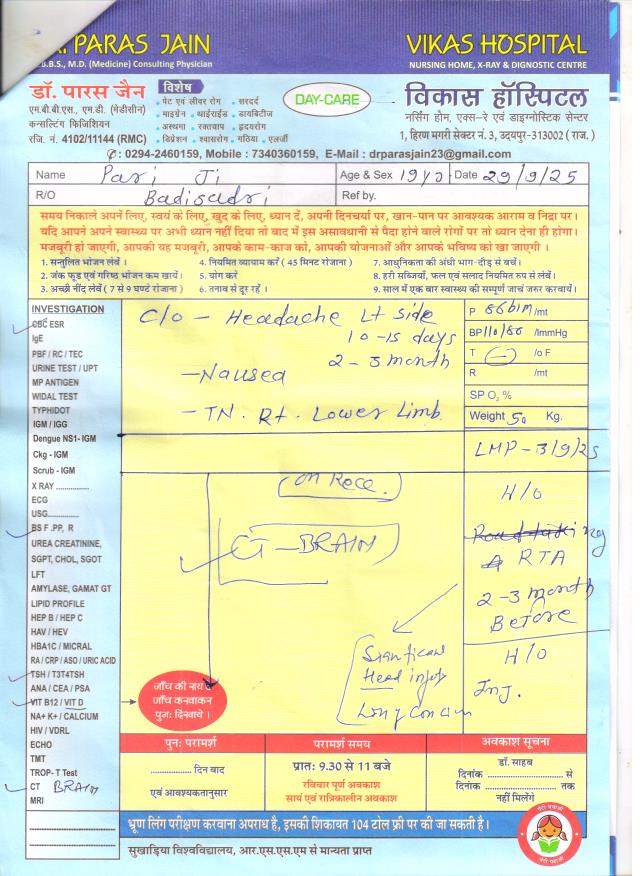 PARAS JAIN
B.B.S., M.D. (Medicine) Consulting Physician
VIKAS HOSPITAL
NURSING HOME, X-RAY & DIGNOSTIC CENTRE
डॉ. पारस जैन
एम.बी.बी.एस., एम.डी. (मेडीसीन)
कन्सल्टिंग फिजिशियन
रजि. नं. 4102/11144 (RMC)
विशेष
• पेट एवं लीवर रोग • सरदर्द
• माइग्रेन • थाईराईड • डायबिटीज
• अस्थमा • रक्तचाप • हृदयरोग
• डिप्रेशन • श्वासरोग • गठिया • एलर्जी
DAY-CARE
विकास हॉस्पिटल
नर्सिंग होम, एक्स-रे एवं डाइग्नोस्टिक सेन्टर
1, हिरण मगरी सेक्टर नं. 3, उदयपुर-313002 ( राज. )
: 0294-2460159, Mobile : 7340360159, E-Mail : drparasjain23@gmail.com
Name Pari Ji Age & Sex 19y Date 29/9/25
R/O Badisadri Ref by.
समय निकाले अपने लिए, स्वयं के लिए, खुद के लिए, ध्यान दें, अपनी दिनचर्या पर, खान-पान पर आवश्यक आराम व निद्रा पर।
यदि आपने अपने स्वास्थ्य पर अभी ध्यान नहीं दिया तो बाद में इस असावधानी से पैदा होने वाले रोगों पर तो ध्यान देना ही होगा।
मजबूरी हो जाएगी, आपकी यह मजबूरी, आपके काम-काज को, आपकी योजनाओं और आपके भविष्य को खा जाएगी ।
1. सन्तुलित भोजन लेवें । 4. नियमित व्यायाम करें ( 45 मिनट रोजाना ) 7. आधुनिकता की अंधी भाग-दौड़ से बचें।
2. जंक फूड एवं गरिष्ठ भोजन कम खायें। 5. योग करे 8. हरी सब्जियाँ, फल एवं सलाद नियमित रुप से लेवें।
3. अच्छी नींद लेवें ( 7 से 9 घण्टे रोजाना ) 6. तनाव से दूर रहें । 9. साल में एक बार स्वास्थ्य की सम्पूर्ण जाचं जरुर करवायें।
INVESTIGATION
CBC ESR
IgE
PBF / RC / TEC
URINE TEST / UPT
MP ANTIGEN
WIDAL TEST
TYPHIDOT
IGM / IGG
Dengue NS1- IGM
Ckg - IGM
Scrub - IGM
X RAY ................
ECG
USG....................
BS F .PP, R
UREA CREATININE,
SGPT, CHOL, SGOT
LFT
AMYLASE, GAMAT GT
LIPID PROFILE
HEP B / HEP C
HAV / HEV
HBA1C / MICRAL
RA / CRP / ASO / URIC ACID
TSH / T3T4TSH
ANA / CEA / PSA
VIT B12 / VIT D
NA+ K+ / CALCIUM
HIV / VDRL
ECHO
TMT
TROP- T Test
CT BRAIN
MRI
C/o - Headache Lt side
10-15 days
2 - 3 month
- Nausea
- TN. Rt. Lower Limb.
P 86bim /mt
BP 110/80 /lmmHg
T /o F
R /mt
SP O2 %
Weight 50 Kg.
LMP - 3/9/25
on Rece.
CT - BRAIN
H/o
RTA
2-3 month
Before
H/o
Inj.
Significant
Head injury
जाँच की राय
जाँच करवाकर
पुनः दिखावे ।
पुनः परामर्श
............... दिन बाद
एवं आवश्यकतानुसार
परामर्श समय
प्रातः 9.30 से 11 बजे
रविवार पूर्ण अवकाश
सायं एवं रात्रिकालीन अवकाश
अवकाश सूचना
डॉ. साहब
दिनांक .................... से
दिनांक .................... तक
नहीं मिलेंगे
भ्रूण लिंग परीक्षण करवाना अपराध है, इसकी शिकायत 104 टोल फ्री पर की जा सकती है।
सुखाड़िया विश्वविद्यालय, आर.एस.एस.एम से मान्यता प्राप्त
बेटी बचाओ
बेटी पढ़ाओ